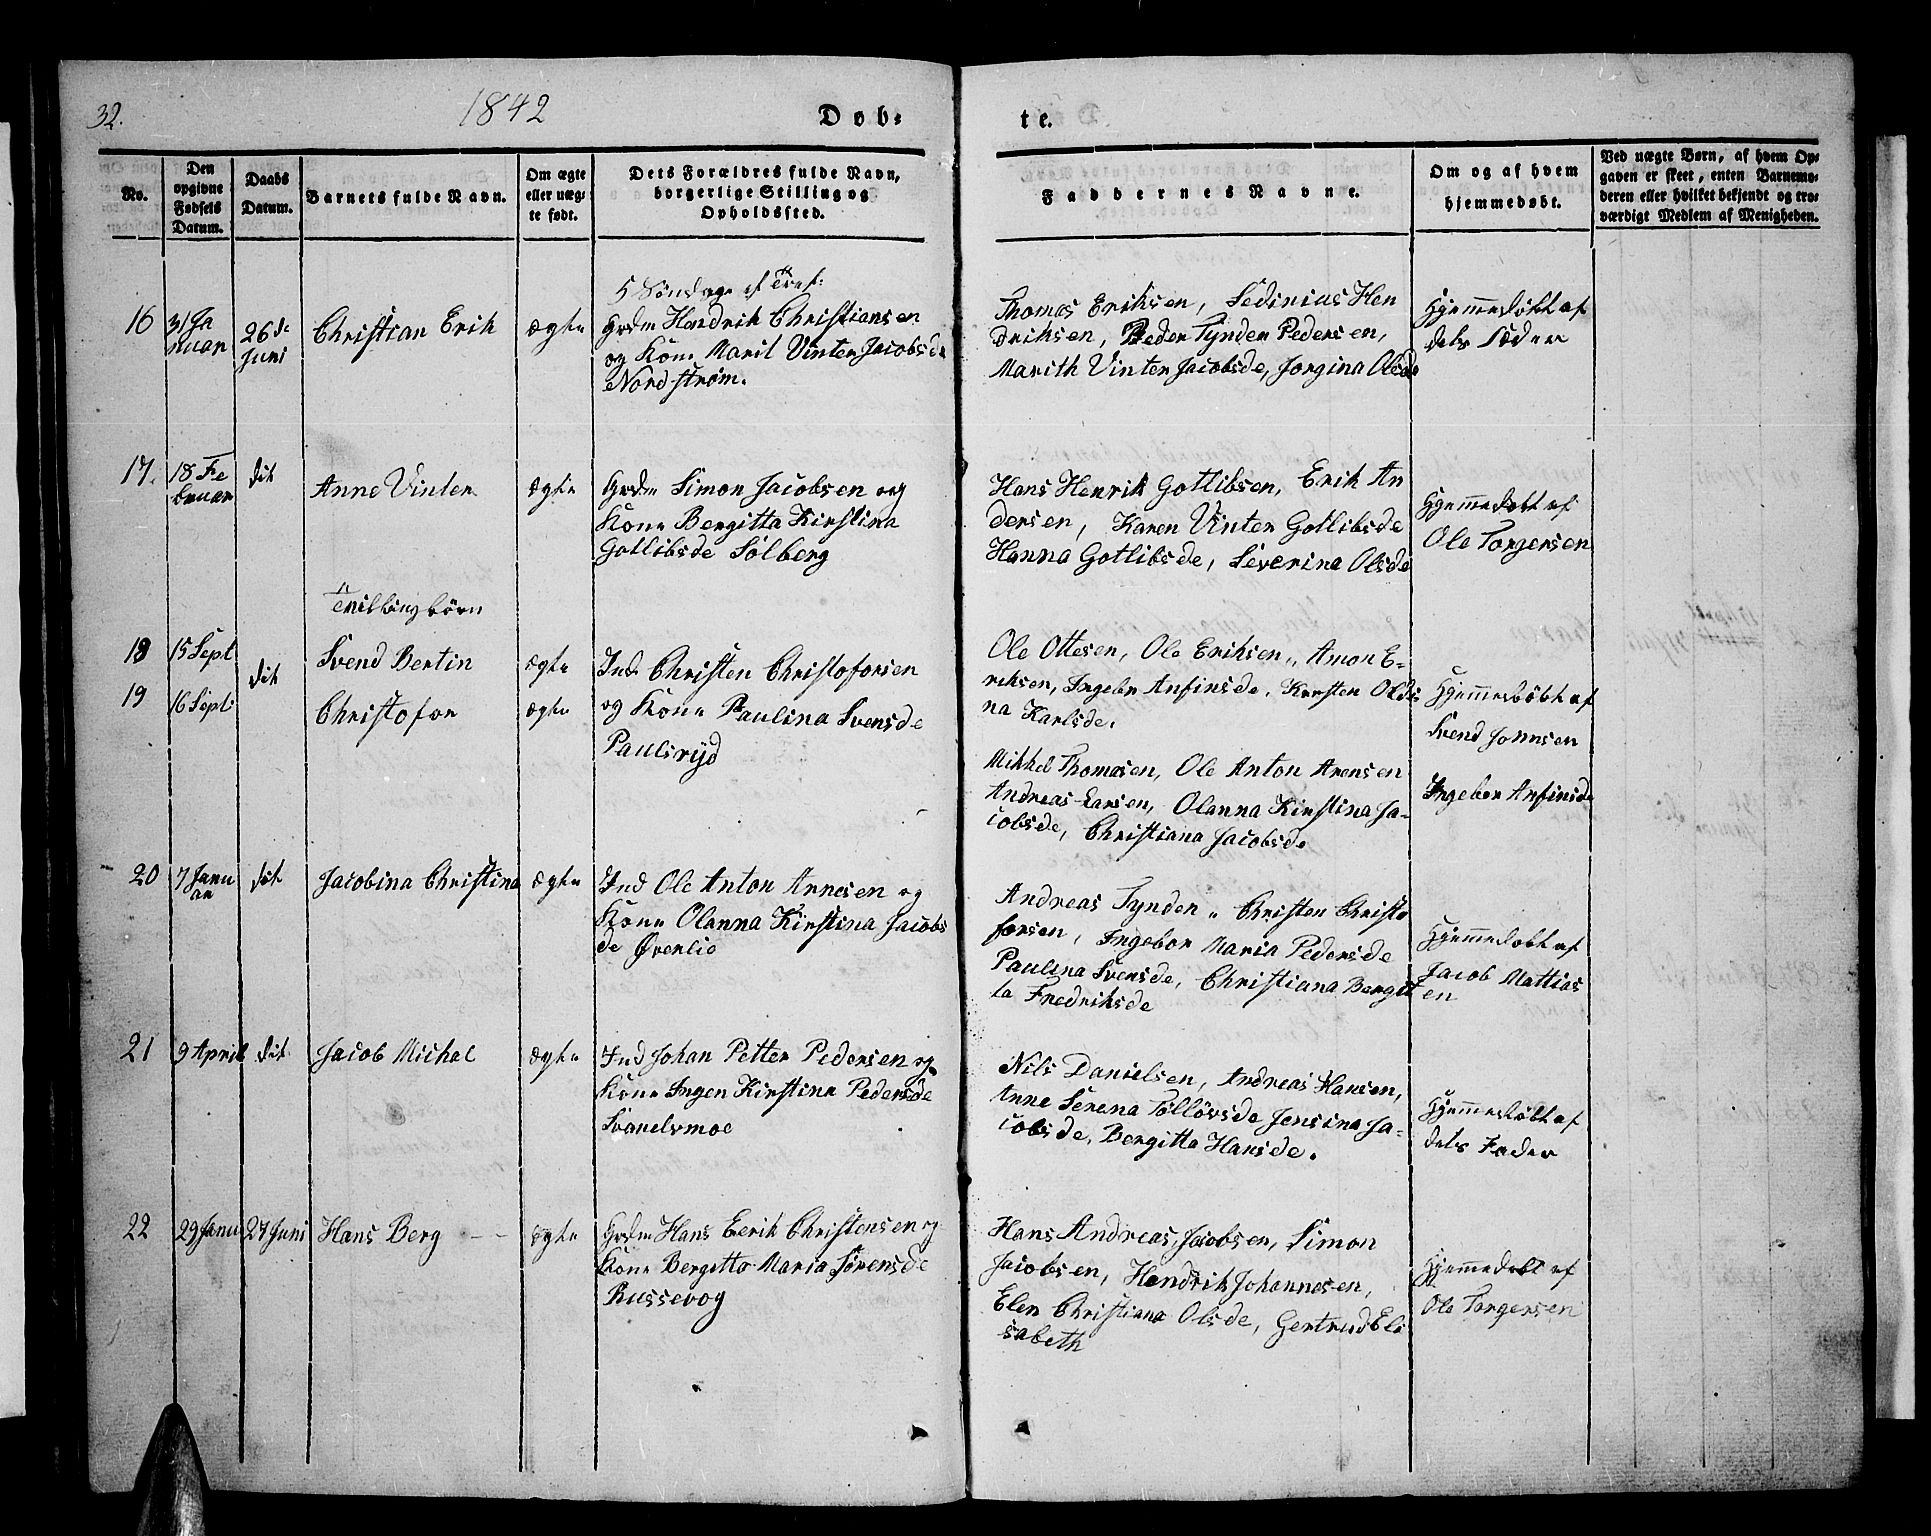 32.
1842
Døb-
te.
No.
Den
opgivne
Fødsels
Datum.
Daabs
Datum.
Barnets fulde Navn.
Om ægte
eller uæg-
te født.
Dets Forældres fulde Navn,
borgerlige Stilling og
Opholdssted.
Faddernes Navne.
Om og af hvem
hjemmedøbt.
Ved uægte Børn, af hvem Op-
gaven er skeet, enten Barnemo-
deren eller hvilket bekjendt og tro-
værdigt Medlem af Menigheden.
5 Søndage ef Tref:
16
31 Ja
nuar
26de
Juni
Christian Erik
ægte
Grdm Hendrik Christiansen
og Kone Marit Vinter Jacobsde
Nordstrøm.
Thomas Eriksen, Sedinius Hen
driksen, Peder Tynder Pedersen,
Marith Vinter Jacobsde, Jorgina Olsde
Hjemmedøbt af
dets Fader
17.
18 Fe
bruar
dit
Anne Vinter
ægte
Grdm Simon Jacobsen og
Kone Bergitta Kirstina
Gotlibsde Sølberg
Hans Henrik Gotlibsen, Erik An
dersen, Karen Vinter Gotlibsde
Hanna Gotlibsde, Severina Olsde
Hjemmedøbt af
Ole Torgersen
Tvillingbørn
18
15 Sept
dit
Svend Bertin
ægte
Ind Christen Christofersen
19
16 Sept:
Christofer
ægte
og Kone Paulina Svensde
Paulsryd
Ole Ottesen, Ole Eriksen, Amon E-
riksen, Ingebor Anfinsde, Kersten Olsde
na Karlsde.
Mikkel Thomasen, Ole Anton Arensen
Andreas Larsen, Olanna Kirstina Ja-
cobsde, Christiana Jacobsde
Hjemmedøbt af
Svend Jonnsen
Ingebor Anfinsde
20
7 Janu
ar
dit
Jacobina Christina
ægte
Ind Ole Anton Arnesen og
Kone Olanna Kirstina Jacobs
de Øverlie
Andreas Tynder, Christen Christo
fersen, Ingebor Maria Pedersde
Paulina Svensde, Christiana Bergit
ta Fredriksde
Hjemmedøbt af
Jacob Mattias
en
21
9 April
dit
Jacob Michal
ægte
Ind Johan Petter Pedersen og
Kone Inger Kirstina Pedersde
Svanelvmoe
Nils Danielsen, Andreas Hansen,
Anne Serena Tollövsde Jensina Ja-
cobsde, Bergitta Hansde.
Hjemmedøbt af
dets Fader
22
29 Janu
27 Juni
Hans Berg
ægte
Grdm Hans Eerik Christensen og
Kone Bergitta Maria Sørensde
Russevog
Hans Andreas Jacobsen, Simon
Jacobsen, Hendrik Johannesen,
Elen Christiana Olsde, Gertrud Eli
sabeth
Hjemmedøbt af
Ole Torgersen